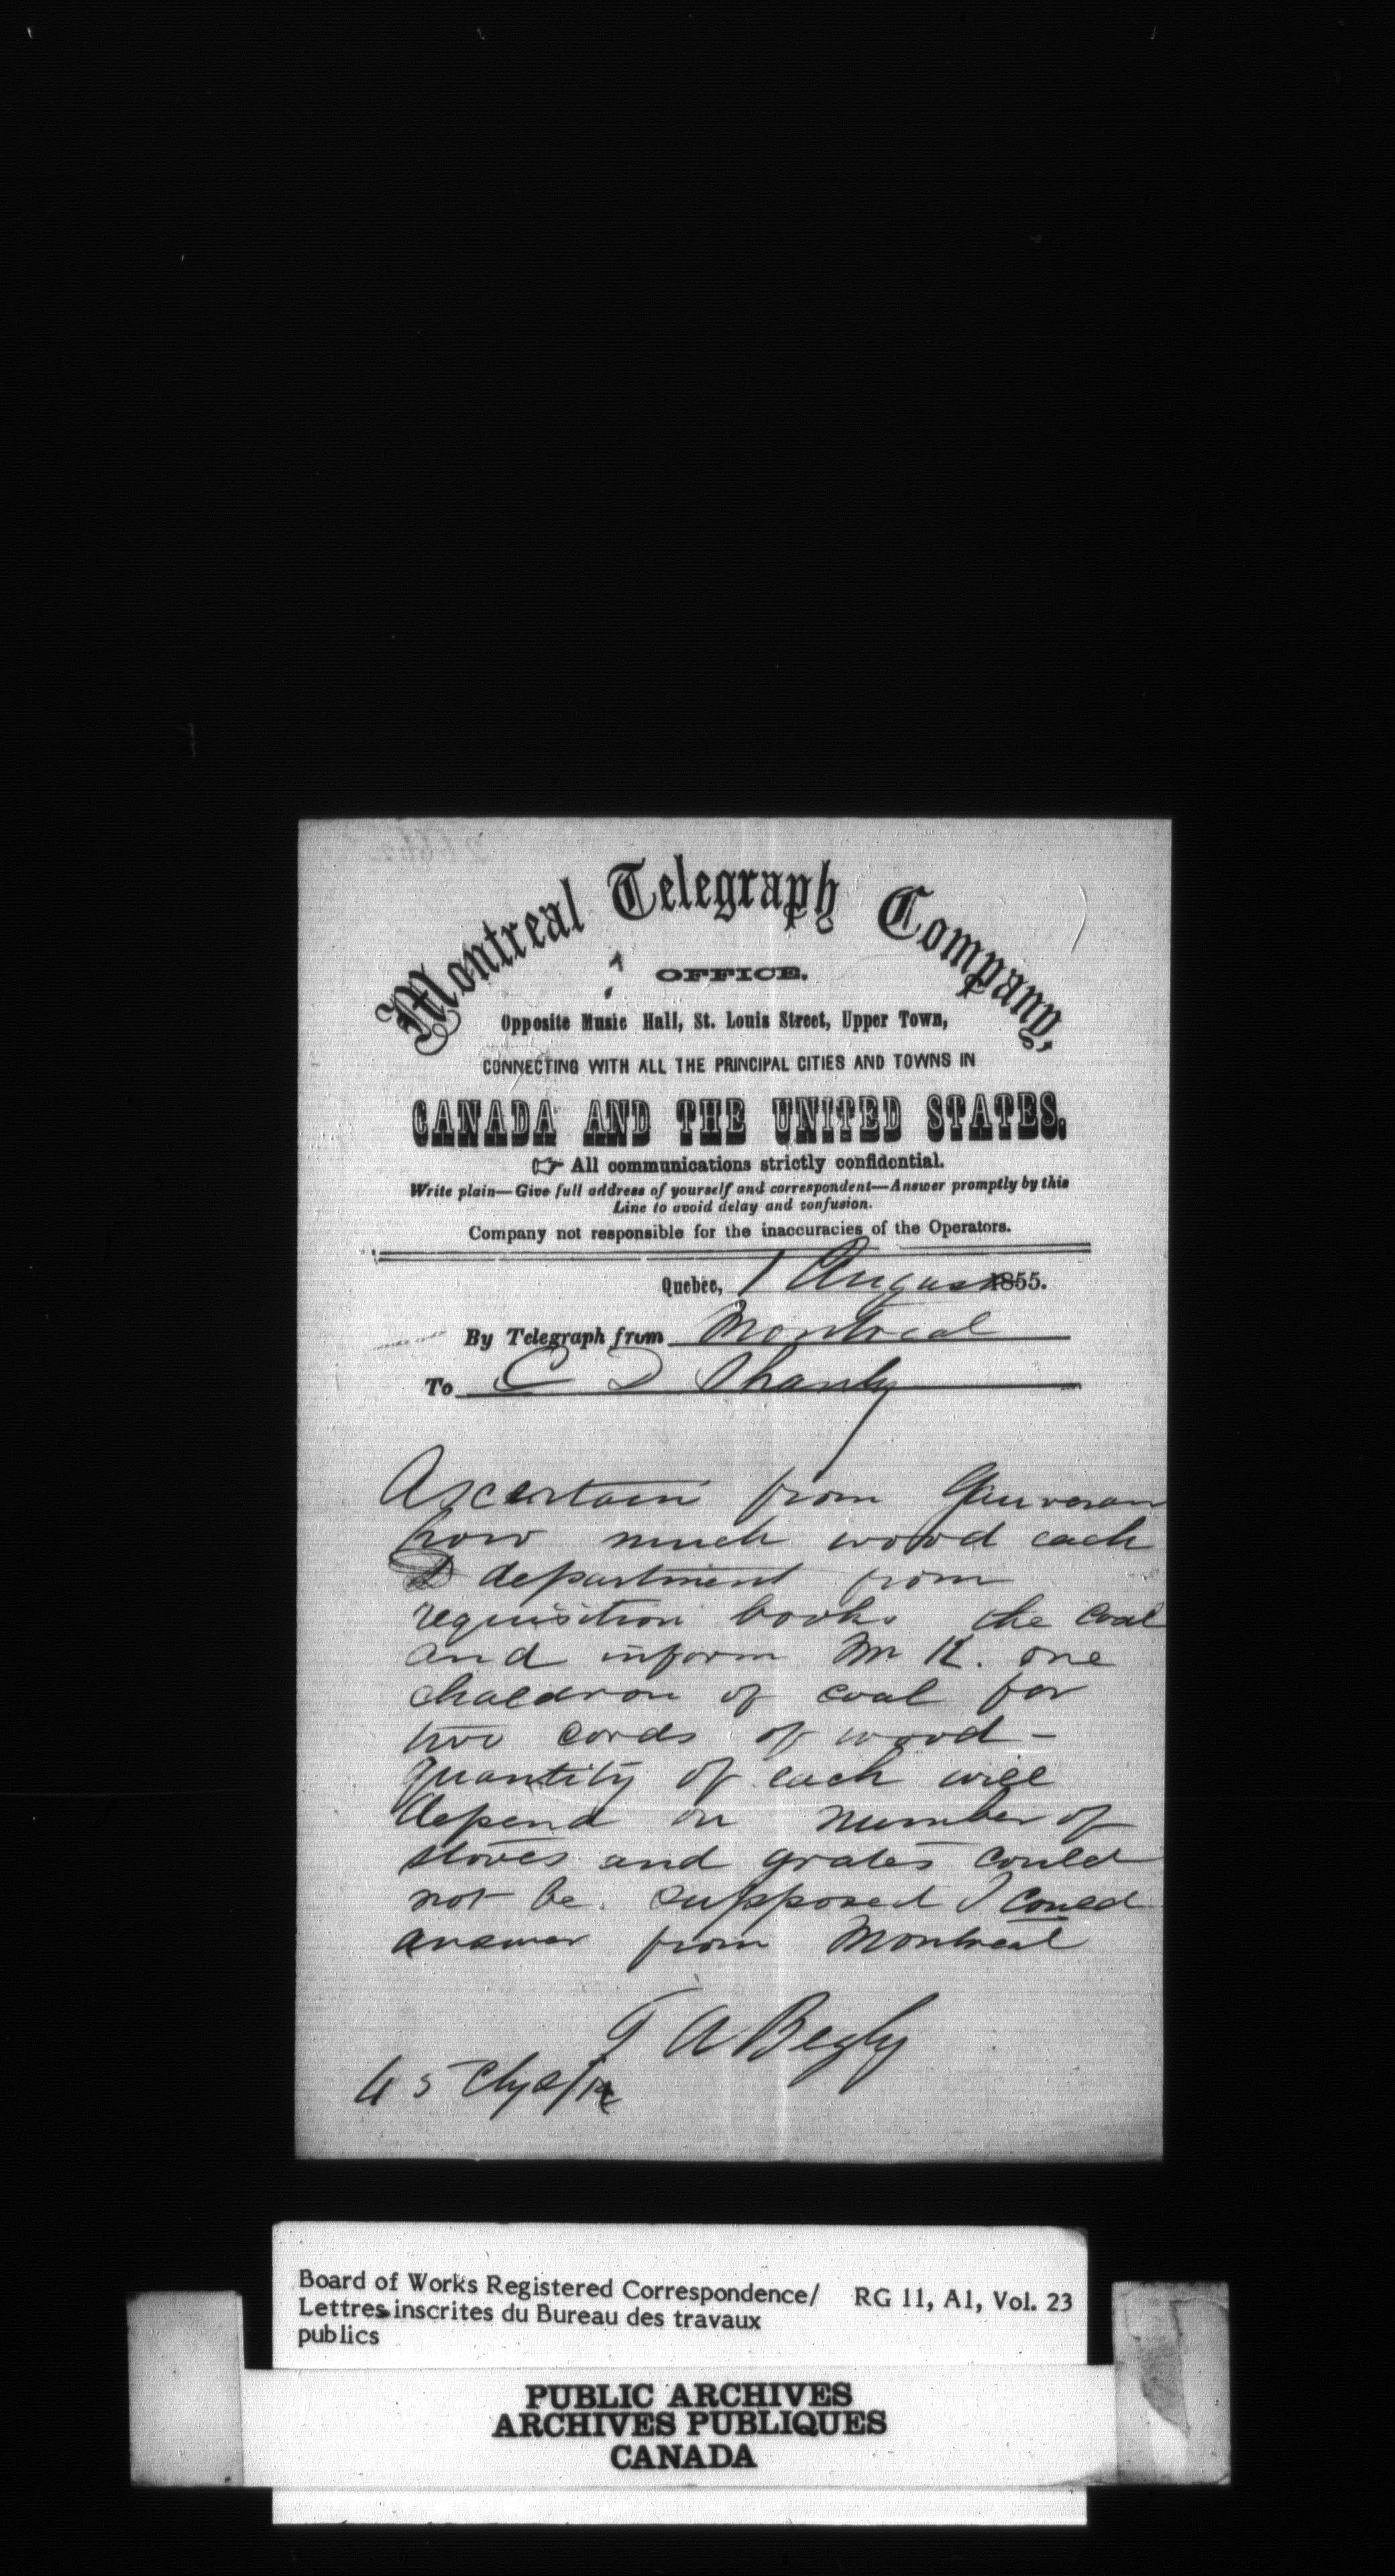 Montreal Telegraph Company,
OFFICE,
Opposite Music Hall, St. Louis Street, Upper Town,
CONNECTING WITH ALL THE PRINCIPAL CITIES AND TOWNS IN
CANADA AND THE UNITED STATES.
☞ All communications strictly confidential.
Write plain—Give full address of yourself and correspondent—Answer promptly by this
Line to avoid delay and confusion.
Company not responsible for the inaccuracies of the Operators.
Quebec, 1 August 1855.
By Telegraph from Montreal
To C D Shanly
Ascertain from Gauvreau
how much wood each
department from
requisition books the coal
and inform Mr K. one
chaldron of coal for
two cords of wood -
quantity of each will
depend on number of
stoves and grates could
not be supposed I could
answer from Montreal
T A Begly
45
Board of Works Registered Correspondence/ RG 11, A1, Vol. 23
Lettres inscrites du Bureau des travaux
publics
PUBLIC ARCHIVES
ARCHIVES PUBLIQUES
CANADA